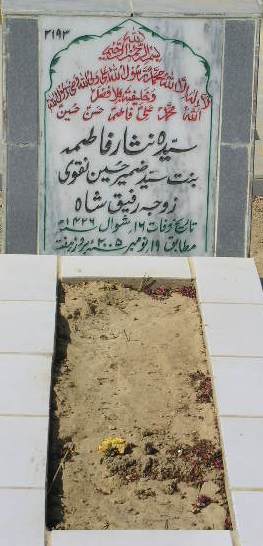 ۳۱۹۳
بسم اللہ الرحمن الرحیم
لا الہ الا اللہ محمد رسول اللہ علی ولی اللہ وصی رسول اللہ
و خلیفتہ بلا فصل
اللہ محمدؐ علیؑ فاطمہؑ حسنؑ حسینؑ
سیدہ نثار فاطمہ
بنت سید ضمیر حسین نقوی
زوجہ رفیق شاہ
تاریخ وفات ۱۶ شوال ۱۴۲۶ھ
مطابق ۱۹ نومبر ۲۰۰۵ء بروز ہفتہ